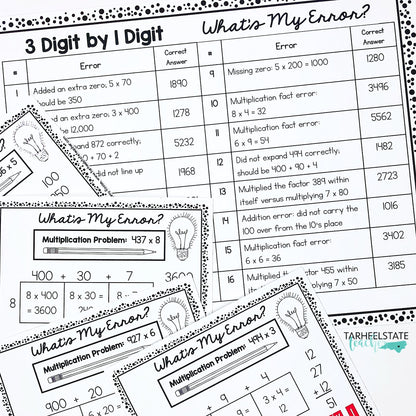 3 Digit by 1 Digit
What's My Error?
#
Error
Correct Answer
1
Added an extra zero; 5 x 70
hould be 350
1890
dded an extra zero; 3 x 400
be 12,000
1278
pand 872 correctly;
+ 70 + 2
5232
did not line up
1968
9
Missing zero; 5 x 200 = 1000
1280
10
Multiplication fact error:
8 x 4 = 32
3496
11
Multiplication fact error:
6 x 9 = 54
5562
12
Did not expand 494 correctly;
should be 400 + 90 + 4
1482
13
Multiplied the factor 389 within
itself versus multiplying 7 x 80
2723
14
Addition error: did not carry the
100 over from the 10's place
1016
15
Multiplication fact error:
6 x 6 = 36
3402
16
Multiplied the factor 455 within
itself versus multiplying 7 x 50
3185
x 5
What's My Error?
Multiplication Problem: 437 x 8
400 + 30 + 7
3600
8
8 x 400
= 3600
8 x 30 =
8 x 7 =
What's My Error?
Multiplication Problem: 927 x 6
900 + 20
What's My Error?
Multiplication Problem: 494 x 3
3 x 4 =
12
27
+ 12
51
TARHEELSTATE
teacher